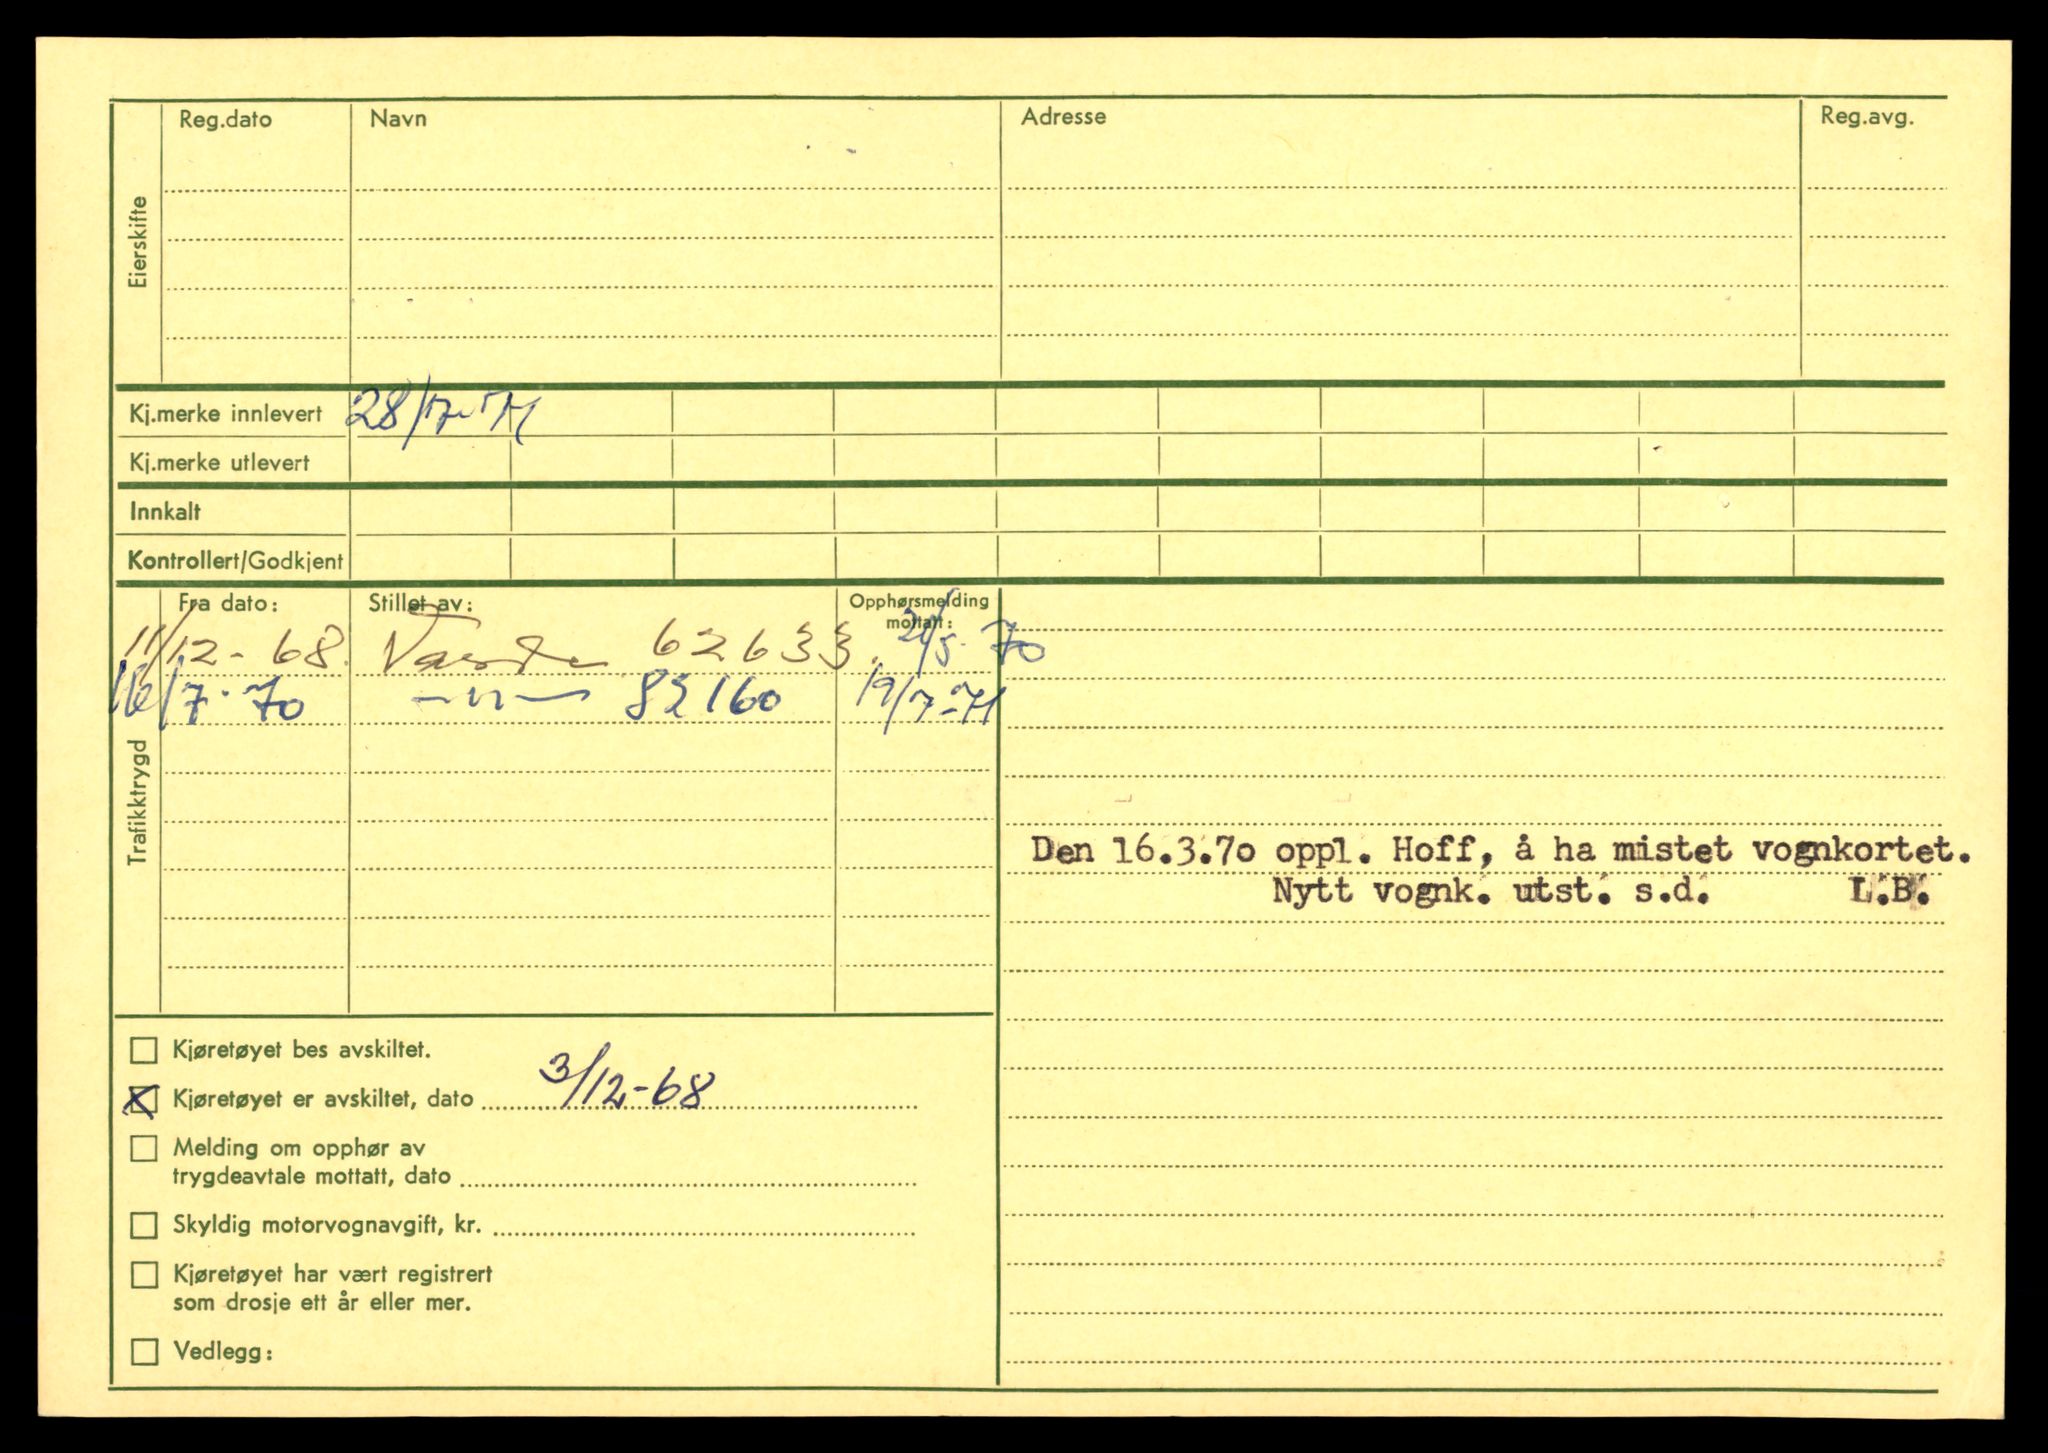 Eierskifte
Reg.dato Navn Adresse Reg.avg.
Kj.merke innlevert 28/7-71
Kj.merke utlevert
Innkalt
Kontrollert/Godkjent
Trafikktrygd
Fra dato: Stillet av: Opphørsmelding mottatt:
11/12-68. 62633. /5-70
16/7-70 —"— 82160 19/7-71
Den 16.3.70 oppl. Hoff, å ha mistet vognkortet.
Nytt vognk. utst. s.d. L.B.
Kjøretøyet bes avskiltet.
X Kjøretøyet er avskiltet, dato 3/12-68
Melding om opphør av
trygdeavtale mottatt, dato
Skyldig motorvognavgift, kr.
Kjøretøyet har vært registrert
som drosje ett år eller mer.
Vedlegg: